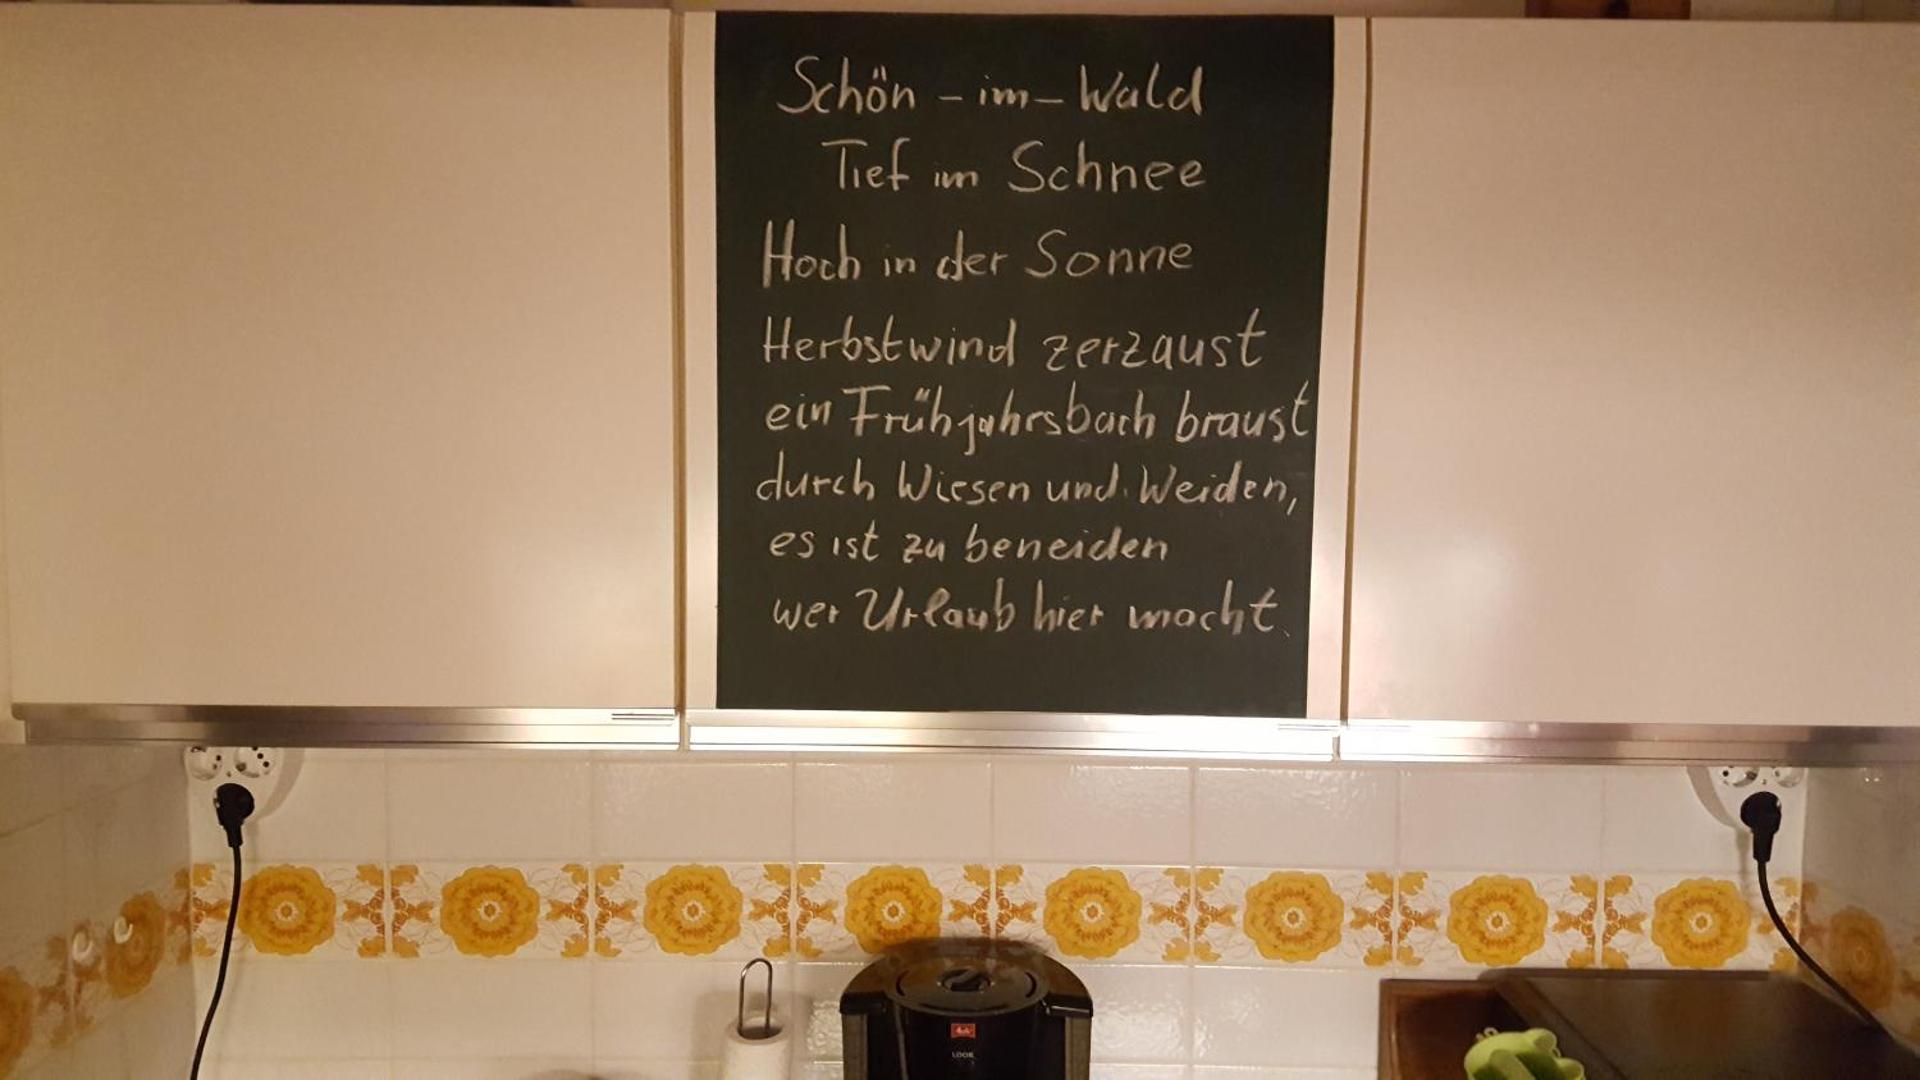 Schön - im - Wald
Tief im Schnee
Hoch in der Sonne
Herbstwind zerzaust
ein Frühjahrsbach braust
durch Wiesen und Weiden,
es ist zu beneiden
wer Urlaub hier macht.
Melitta
LOOK